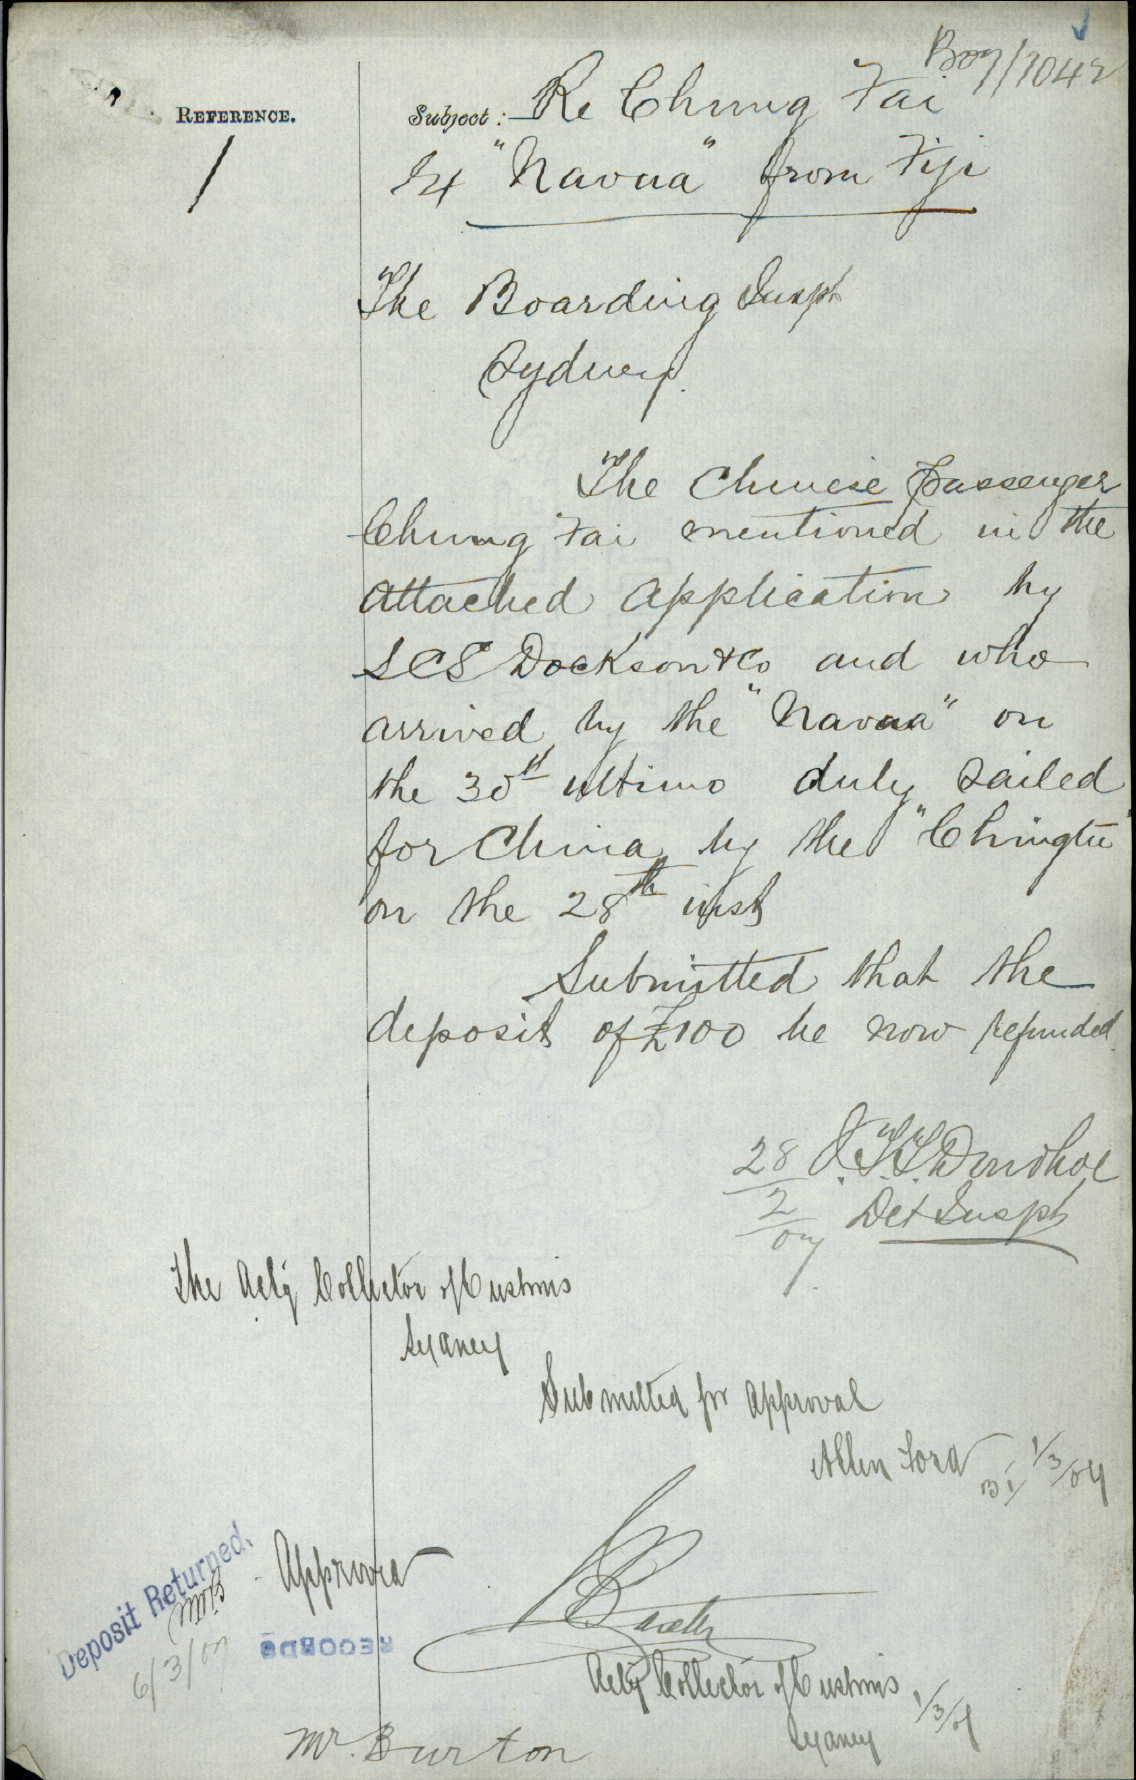 B07/7042
REFERENCE.
Subject: Re Chung Fai
1
"Navua" from Fiji
The Boarding Inspr
Sydney.
The Chinese passenger
Chung Fai mentioned in the
attached application by
S C S Dockson & Co and who
arrived by the "Navua" on
the 30th ultimo duly sailed
for China by the "Chingtu"
on the 28th inst
Submitted that the
deposit of £100 be now refunded
28/2/07 J.T.T. Donohoe
Det Inspr
The Actg Collector of Customs
Sydney
Submitted for approval
Allen Ford
B.I. 1/3/07
Approved
Baxter
Actg Collector of Customs
Sydney 1/3/07
Deposit Returned.
6/3/07
RECORDS
Mr. Burton